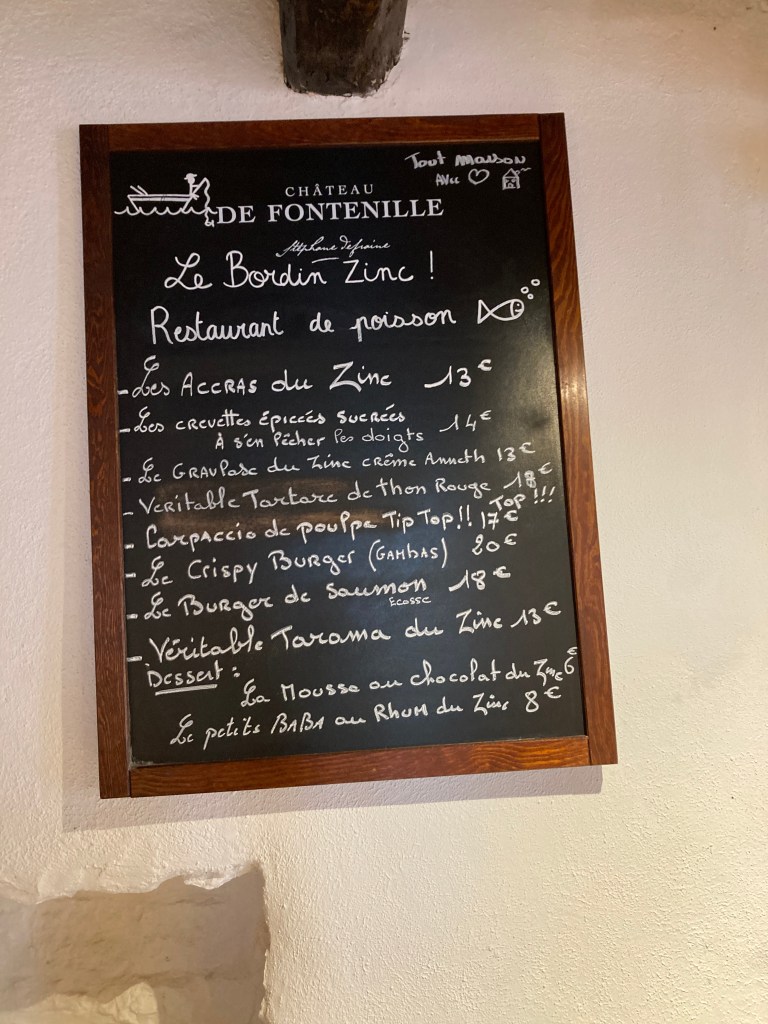 Tout Maison
Avec
CHÂTEAU
DE FONTENILLE
Stéphane Defraine
Le Bordin Zinc !
Restaurant de poisson
- Les Accras du Zinc 13€
- Les crevettes épiccés sucrées 14€
À s'en lêcher les doigts
- Le Gravlasc du Zinc crème Anneth 13€
- Veritable Tartare de thon Rouge 18€
TOP !!!
- Carpaccio de poulpe Tip Top!! 17€
- Le Crispy Burger (GAMBAS) 20€
- Le Burger de saumon 18€
Ecosse
- Véritable Tarama du Zinc 13€
Dessert :
La Mousse au chocolat du Zinc 6€
Le petits BABA au Rhum du Zinc 8€